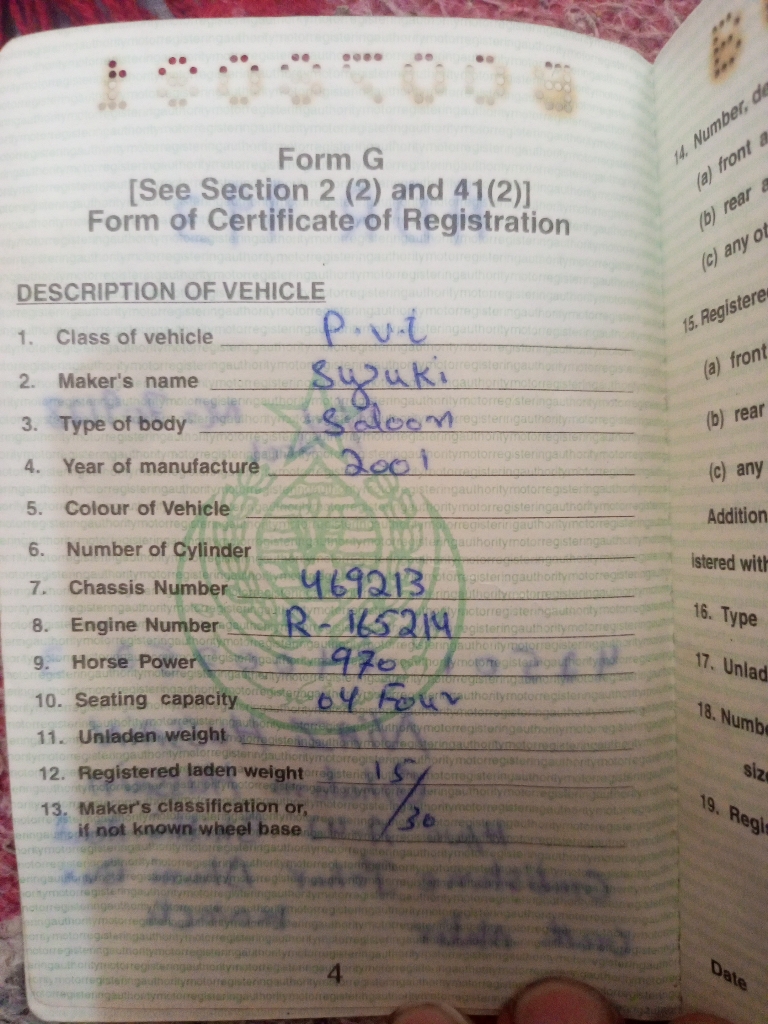 Form G
[See Section 2 (2) and 41(2)]
Form of Certificate of Registration
DESCRIPTION OF VEHICLE
1. Class of vehicle P.v.t
2. Maker's name Suzuki
3. Type of body Saloon
4. Year of manufacture 2001
5. Colour of Vehicle
6. Number of Cylinder
7. Chassis Number 469213
8. Engine Number R-165214
9. Horse Power 970
10. Seating capacity 04 Four
11. Unladen weight
12. Registered laden weight 15/
13. Maker's classification or, /30
if not known wheel base
4
14. Number, de
(a) front a
(b) rear a
(c) any ot
15. Registere
(a) front
(b) rear
(c) any
Addition
istered with
16. Type
17. Unlad
18. Numbe
size
19. Regi
Date